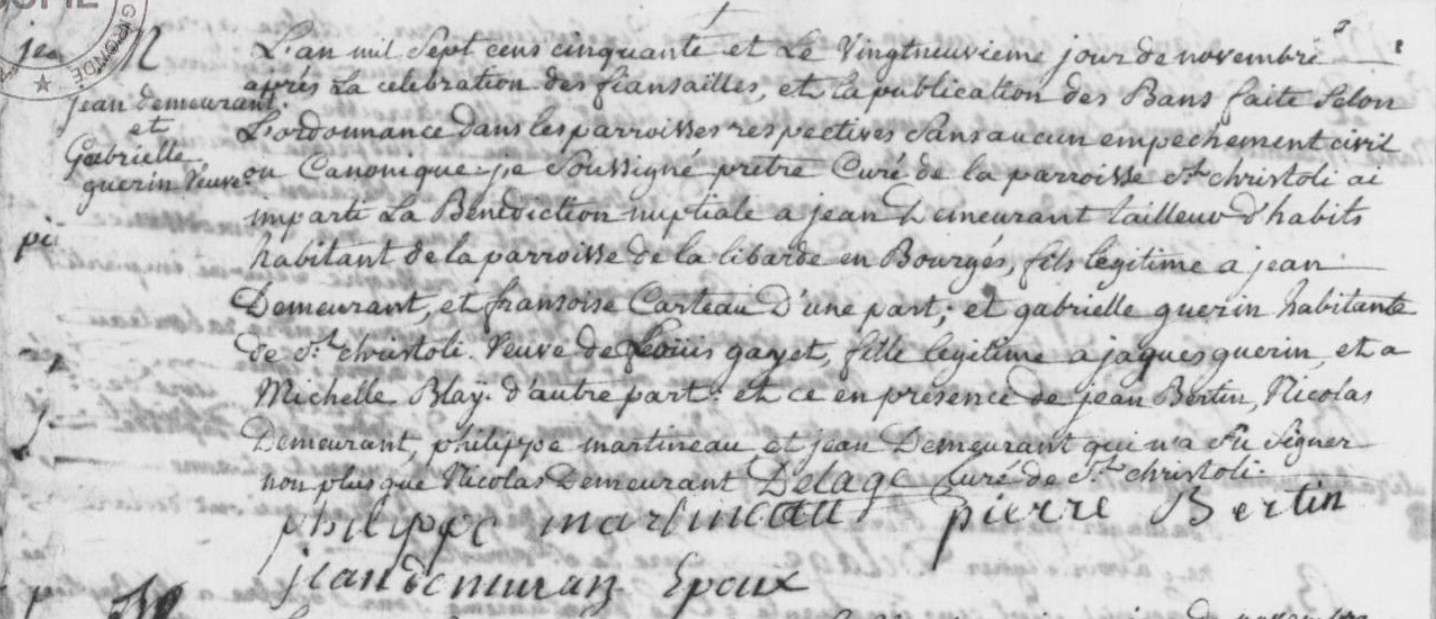 M
jean demeurant.
et
Gabrielle
guerin Veuve
L'an mil Sept cens cinquante et Le Vingtneuvieme jour de novembre
aprés La celebration des fiansailles, et la publication des Bans faite Selon
L'ordonnance dans les parroisses respectives Sans aucun empechement civil
ou Canonique je Soussigné prétre Curé de la parroisse St christoli ai
imparti La Benediction nuptiale a jean Demeurant tailleur d'habits
habitant de la parroisse de la libarde en Bourgés, fils legitime a jean
Demeurant, et fransoise Carteau D'une part; et gabrielle guerin habitante
de St christoli. Veuve de Loüis gayet, fille legitime a jaques guerin et a
Michelle Blaÿ. d'autre part: et ce en presence de jean Bertin, Nicolas
Demeurant, philippe martineau et jean Demeurant qui n'a Sû Signer
non plus que Nicolas Demeurant Delage Curé de St christoli.
philippe martineau pierre Bertin
jean demuran Epoux